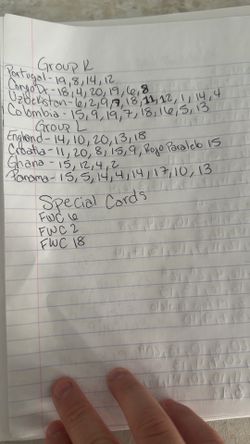 Group K
Portugal - 19, 8, 14, 12
Congo DR - 18, 4, 20, 19, 6, 8
Uzbekistan - 6, 2, 9, 17, 18, 11, 12, 1, 14, 4
Colombia - 15, 9, 19, 7, 18, 16, 5, 13
Group L
England - 14, 10, 20, 13, 18
Croatia - 11, 20, 8, 15, 9, Rojo Paralelo 15
Ghana - 15, 12, 4, 2
Panama - 15, 5, 14, 4, 14, 17, 10, 13
Special Cards
FWC 6
FWC 2
FWC 18